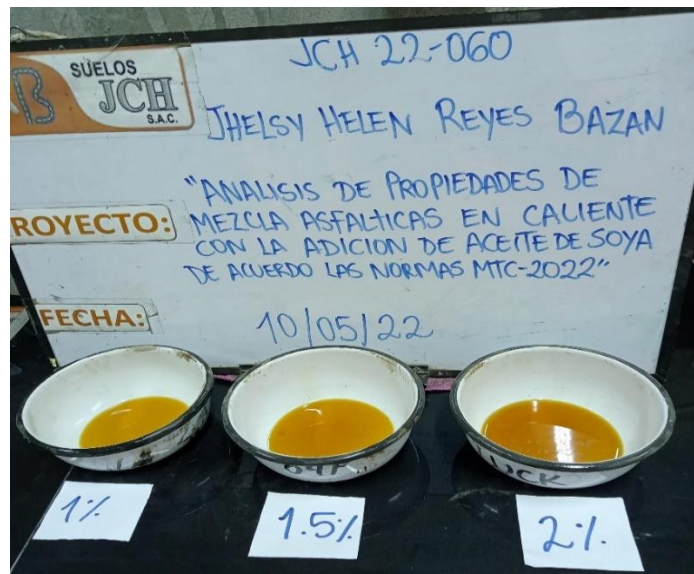 SUELOS
JCH
S.A.C.
JCH 22-060
JHELSY HELEN REYES BAZAN
ROYECTO:
"ANALISIS DE PROPIEDADES DE
MEZCLA ASFALTICAS EN CALIENTE
CON LA ADICION DE ACEITE DE SOYA
DE ACUERDO LAS NORMAS MTC-2022"
FECHA:
10/05/22
LUCK
1%
1.5%
2%.